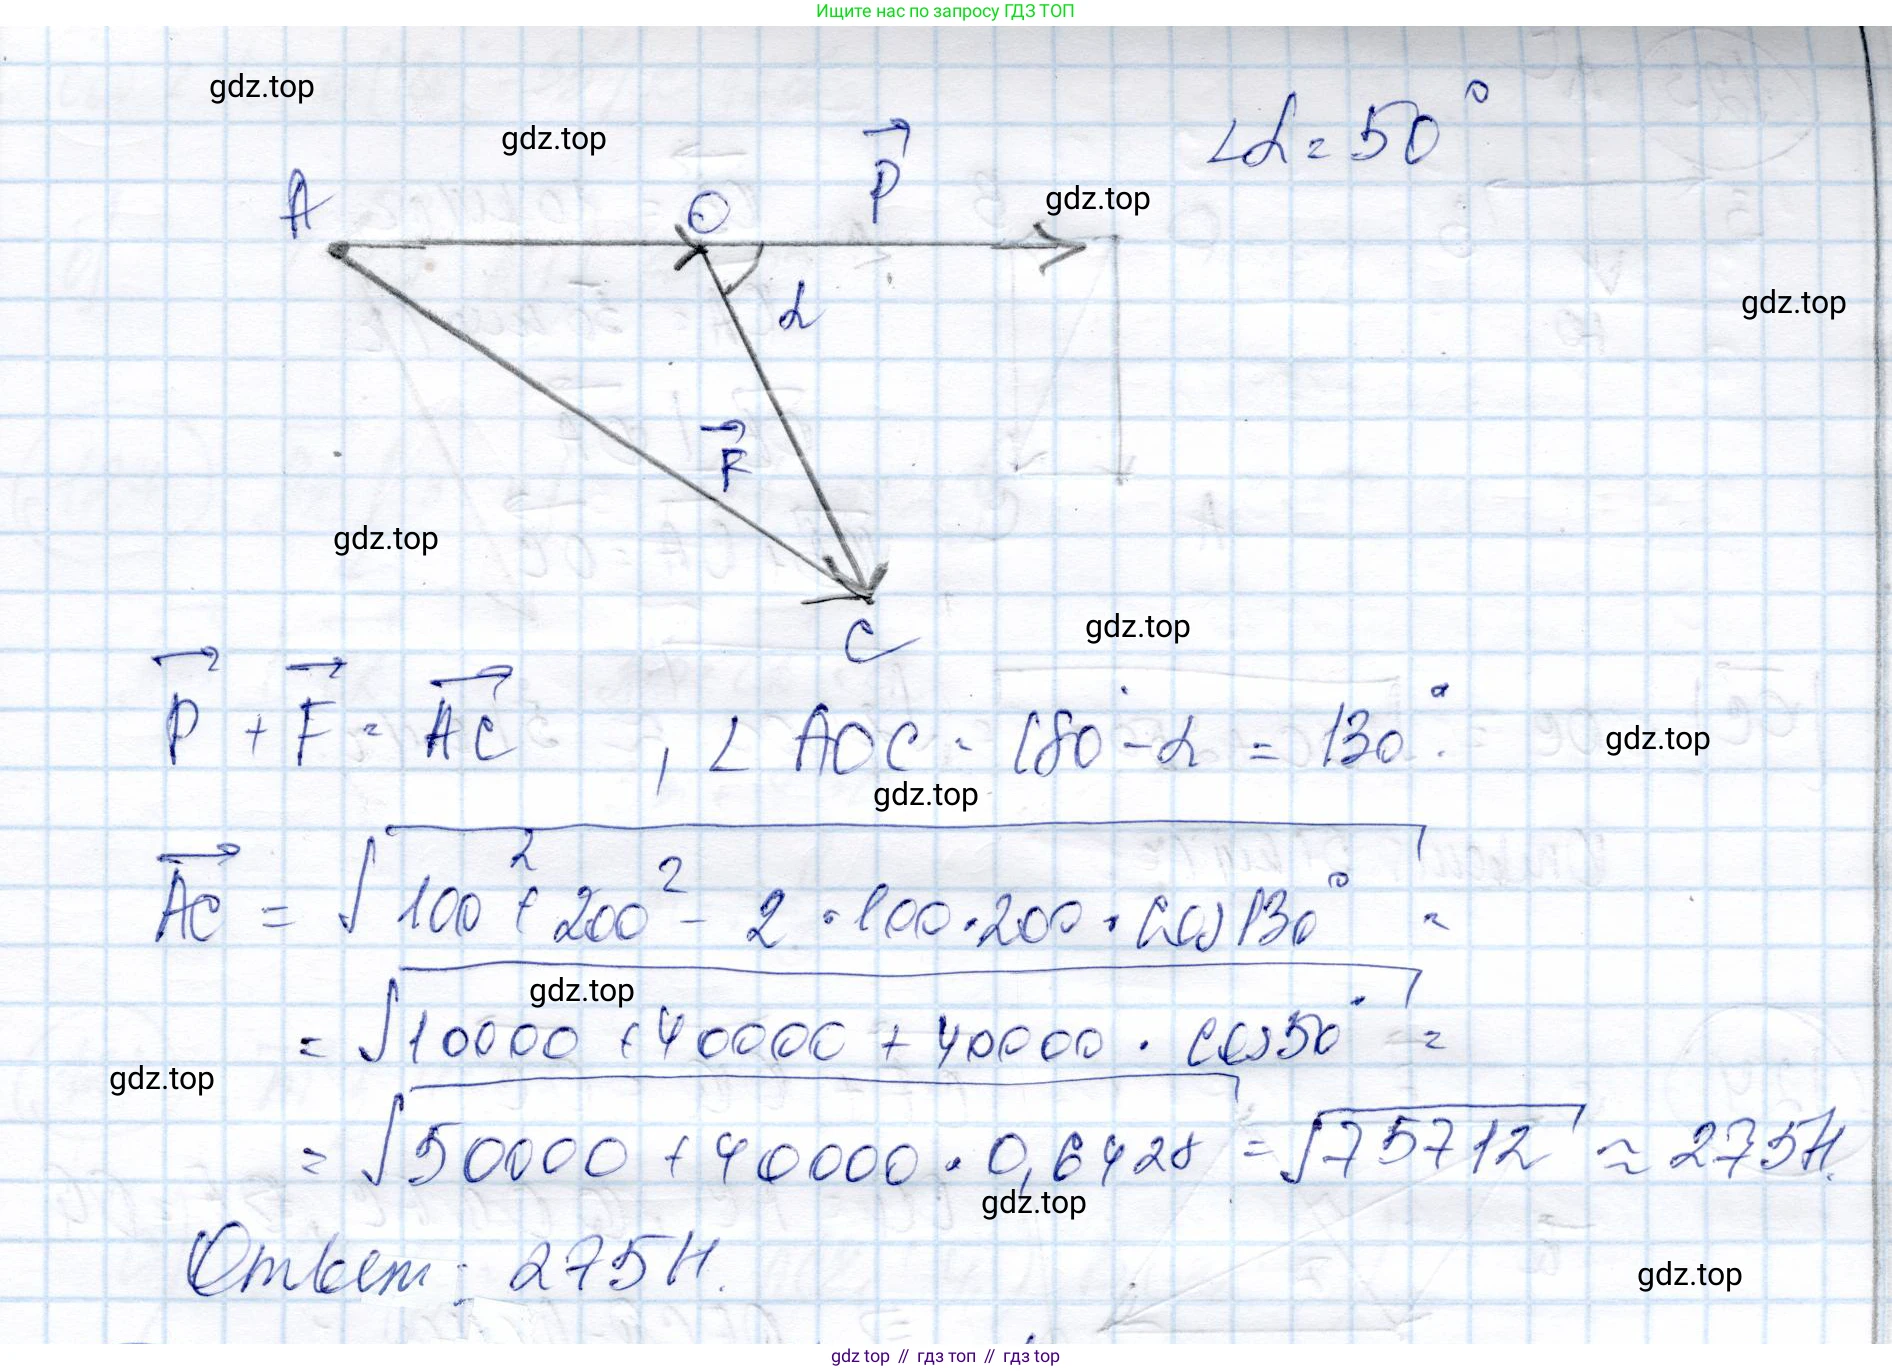 Ищите нас по запросу ГДЗ ТОП
gdz.top
gdz.top
∠α = 50°
P⃗
gdz.top
A
O
gdz.top
α
F⃗
gdz.top
C
gdz.top
P⃗ + F⃗ = A͞C⃗ , ∠ AOC = 180° - α = 130°.
gdz.top
gdz.top
A͞C⃗ = √(100² + 200² - 2 · 100 · 200 · cos 130°) =
gdz.top
= √(10000 + 40000 + 40000 · cos 50°) =
gdz.top
= √(50000 + 40000 · 0,6428) = √75712 ≈ 275Н.
gdz.top
Ответ: 275Н.
gdz.top
gdz top // гдз топ // гдз top